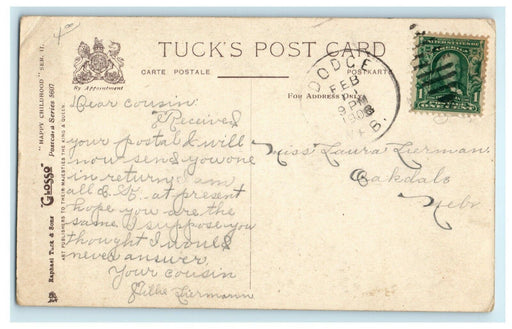 4.00
TUCK'S POST CARD
CARTE POSTALE
POSTKARTE
By Appointment
FOR ADDRESS ONLY
DODGE
FEB
9 PM
1908
"HAPPY CHILDHOOD" SER. II.
Postcard Series 5607
"Glosso"
ART PUBLISHERS TO THEIR MAJESTIES THE KING & QUEEN
Raphael Tuck & Sons
Dear cousin:
I Received
your postal & will
now send you one
in return I am
all O.K. at present
hope you are the
same. I suppose you
thought I would
never answer.
Your cousin
Liermann
Miss Laura Lierman.
Oakdale
Nebr